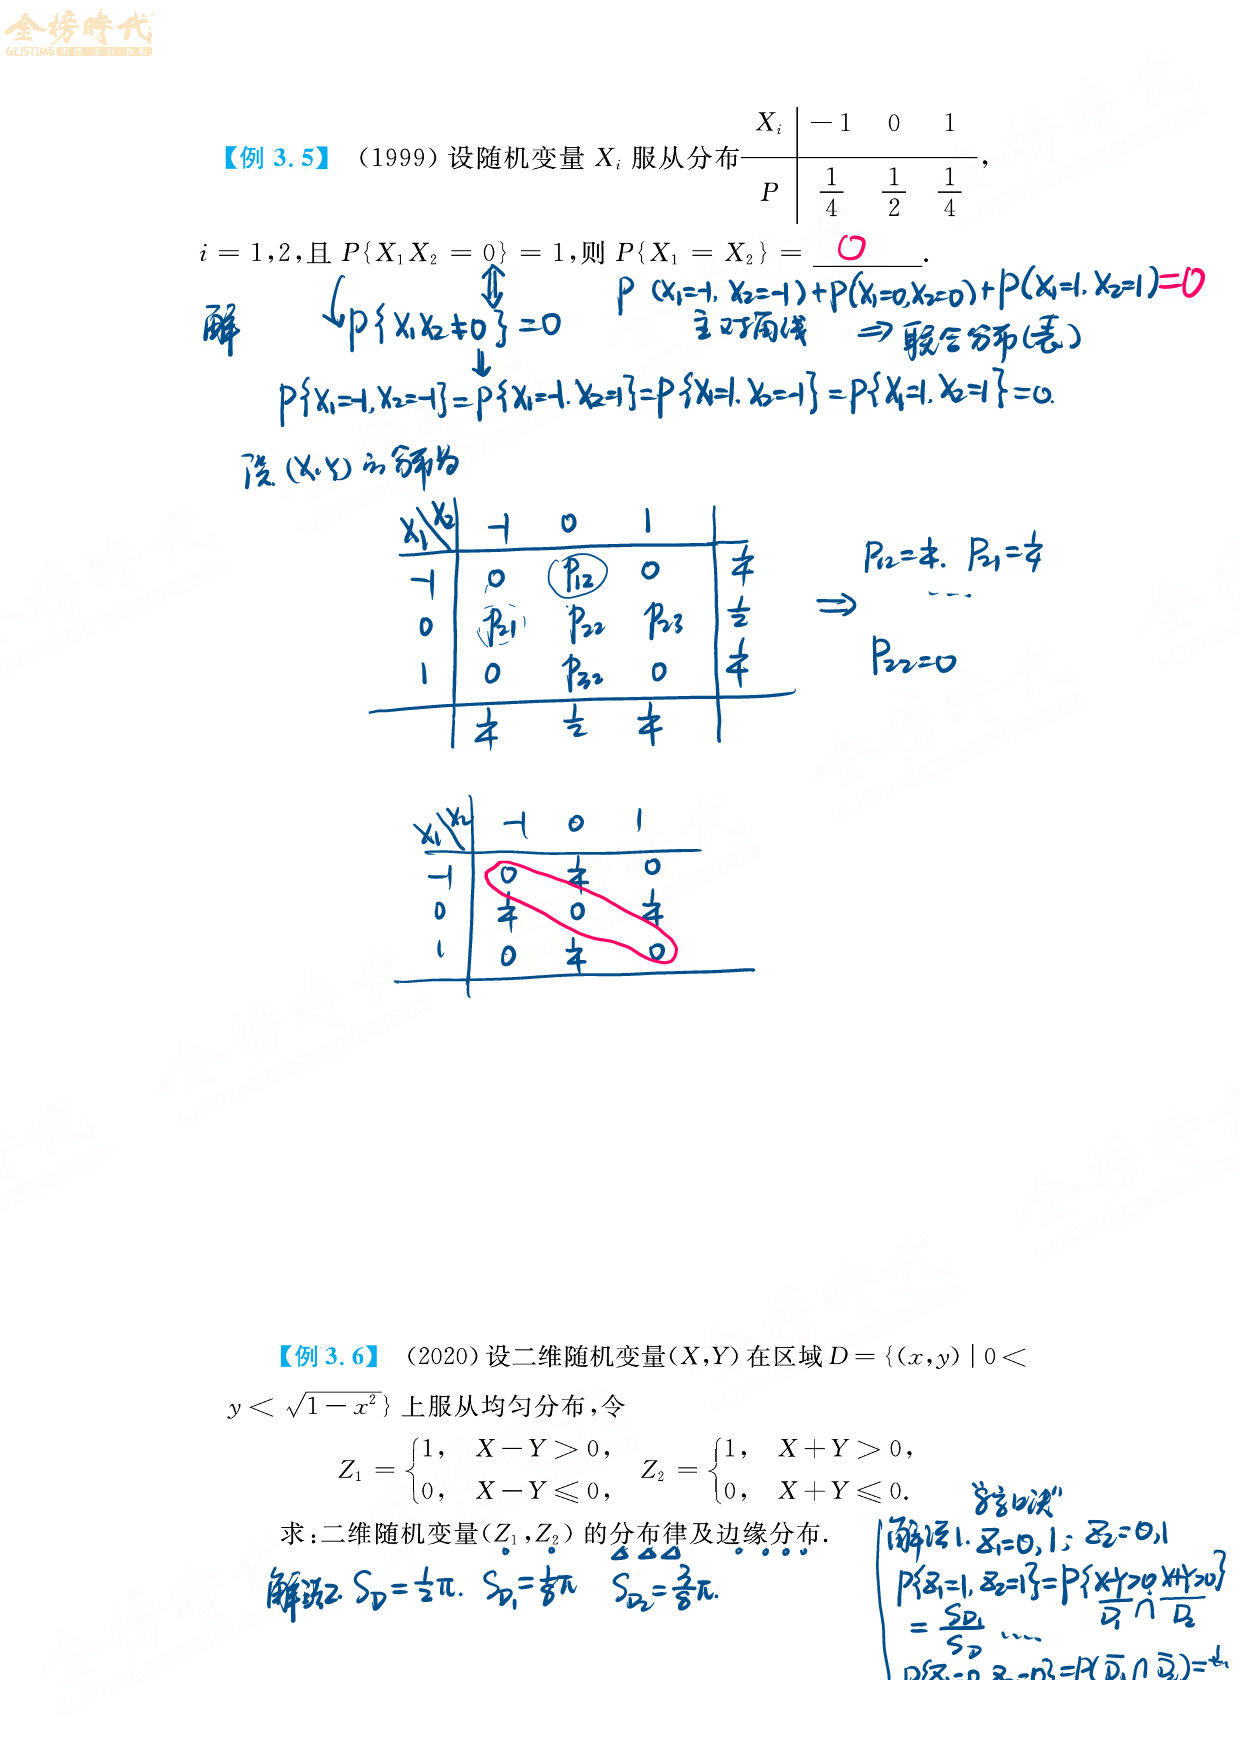 金榜時代
GLISTIME
X_i | -1 0 1
【例 3.5】 (1999) 设随机变量 X_i 服从分布 ,
P | 1/4 1/2 1/4
i = 1,2,且 P{X₁X₂ = 0} = 1,则 P{X₁ = X₂} = 0 .
P(X₁=-1, X₂=-1)+P(X₁=0,X₂=0)+P(X₁=1,X₂=1)=0
解 P{X₁X₂≠0}=0 主对角线 ⇒ 联合分布(表)
P{X₁=-1,X₂=-1}=P{X₁=-1,X₂=1}=P{X₁=1,X₂=-1}=P{X₁=1,X₂=1}=0.
设(X,Y)的分布为
X₁\X₂ | -1 0 1
-1 | 0 P₁₂ 0 | 1/4
0 | P₂₁ P₂₂ P₂₃ | 1/2
1 | 0 P₃₂ 0 | 1/4
1/4 1/2 1/4
⇒ P₁₂=1/4, P₂₁=1/4
...
P₂₂=0
X₁\X₂ | -1 0 1
-1 | 0 1/4 0
0 | 1/4 0 1/4
1 | 0 1/4 0
【例 3.6】 (2020) 设二维随机变量(X,Y) 在区域 D = {(x,y) | 0 <
y < √(1-x²)} 上服从均匀分布,令
Z₁ = {1, X-Y > 0, Z₂ = {1, X+Y > 0,
0, X-Y ≤ 0, 0, X+Y ≤ 0.
求:二维随机变量(Z₁,Z₂) 的分布律及边缘分布.
解法2. S_D=1/2π. S_D₁=1/8π S_D₂=3/8π.
解法1. Z₁=0,1; Z₂=0,1
P{Z₁=1, Z₂=1}=P{X-Y>0, X+Y>0}
D₁ ∩ D₂
= S_D₁/S_D ....
P{Z₁=0, Z₂=0}=P(D̄₁∩D̄₂)=